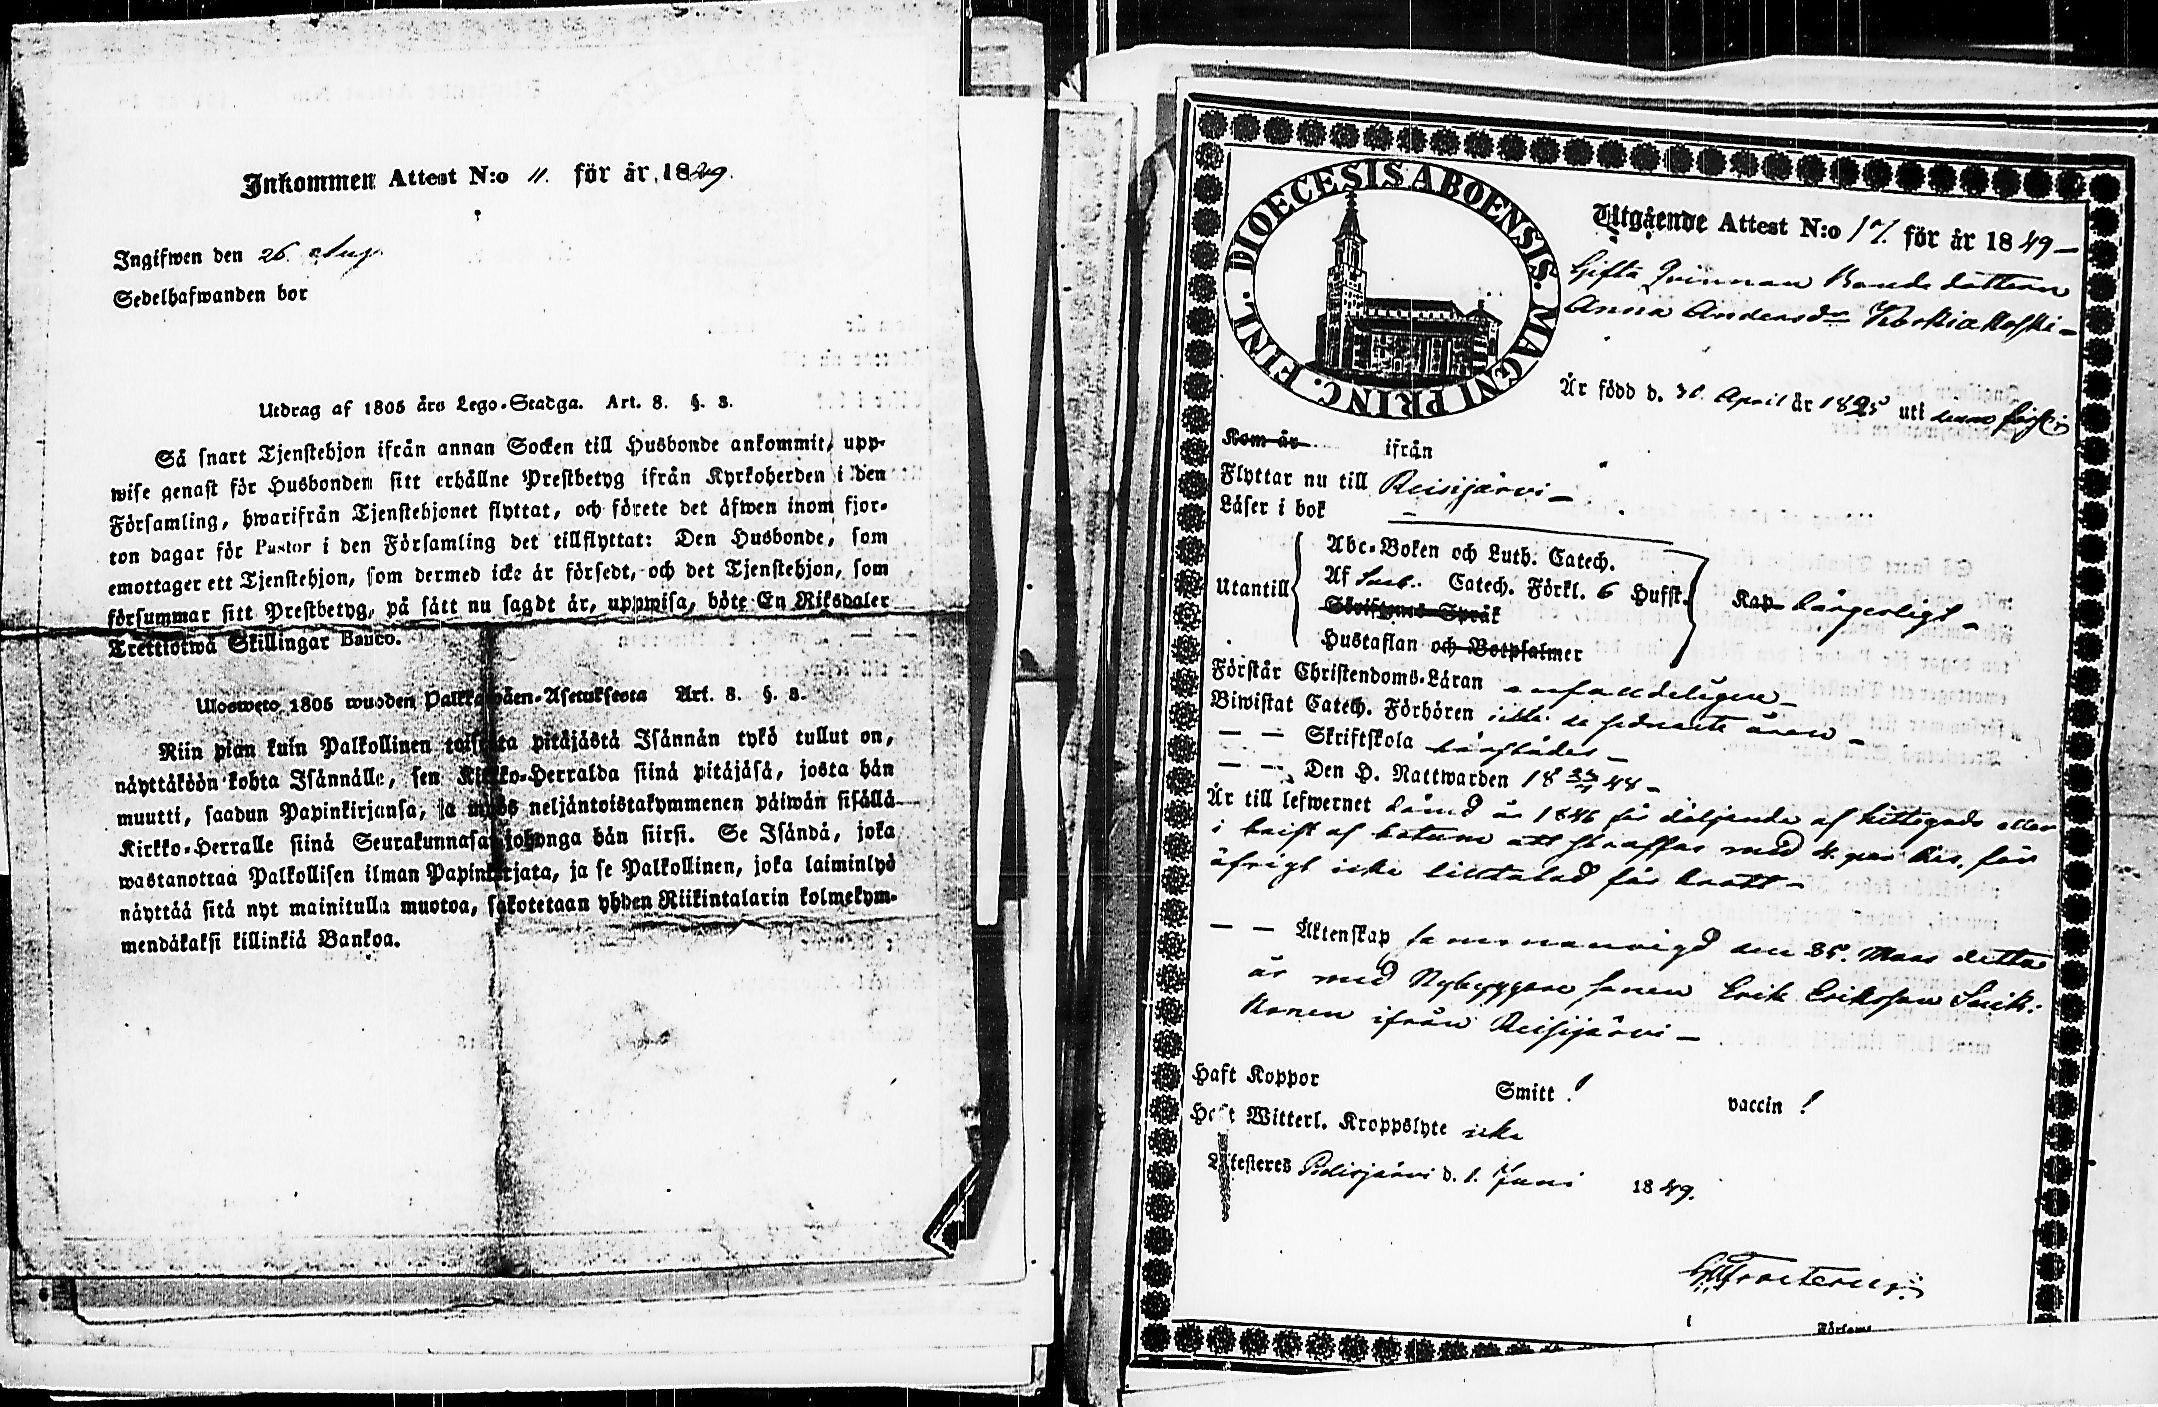 Inkommen Attest N:o 11. för år 1849.
Ingifwen den 26. Aug.
Sedelhafwanden bor
Utdrag af 1805 års Lego-Stadga. Art. 8. §. 3.
Så snart Tjenstehjon ifrån annan Socken till Husbonde ankommit, upp-
wise genast för Husbonden sitt erhållne Prestbetyg ifrån Kyrkoherden i den
Församling, hwarifrån Tjenstehjonet flyttat, och förete det äfwen inom fjor-
ton dagar för Pastor i den Församling det tillflyttat: Den Husbonde, som
emottager ett Tjenstehjon, som dermed icke är försedt, och det Tjenstehjon, som
försummar sitt Prestbetyg, på sätt nu sagdt är, uppwisa, böte En Riksdaler
Trettiotwå Skillingar Banco.
Ulosweto 1805 wuoden Palkkawäen-Asetuksesta Art. 8. §. 3.
Niin pian kuin Palkollinen toisesta pitäjästä Isännän tykö tullut on,
näyttäköön kohta Isännälle, sen Kirkko-Herralda siinä pitäjäsä, josta hän
muutti, saadun Papinkirjansa, ja myös neljäntoistakymmenen päiwän sisällä
Kirkko-Herralle siinä Seurakunnasa, johonga hän siirsi. Se Isändä, joka
wastanottaa Palkollisen ilman Papinkirjata, ja se Palkollinen, joka laiminlyö
näyttää sitä nyt mainitulla muotoa, sakotetaan yhden Riikintalarin kolmekym-
mendäkaksi killinkiä Bankoa.
DIOECESIS ABOENSIS. MAGNI PRINC. FINL.
Utgående Attest N:o 17. för år 1849
Gifta Qvinnan Bondedottern
Anna Andersdr
Är född d. 30 April år 1825 uti
Kom år ifrån
Flyttar nu till Reisijärvi
Läser i bok
Abc-Boken och Luth. Catech.
Utantill Af Sweb. Catech. Förkl. 6 Hufst. Kap. bärgerligt
Skriftenes Språk
Hustaflan och Botpsalmer
Förstår Christendoms-Läran enfaldeligen
Biwistat Catech. Förhören icke de sednaste åren
— — Skriftskola
— — Den H. Nattwarden 18
Är till lefwernet dömd år 1846 för döljande af hittegods eller
i brist af botum att straffas med 4. par Ris, för
öfrigt icke lilltalad för brott
— — Äktenskap sammanvigd den 25. Mars detta
år med Nybyggare sonen Erik Eriksson
ifrån Reisijärvi
Haft Koppor Smitt ! vaccin !
Haft Witterl. Kroppslyte icke
Attesteres Pidisjärvi d. 1. Juni 1849.
Frosterus
Församl